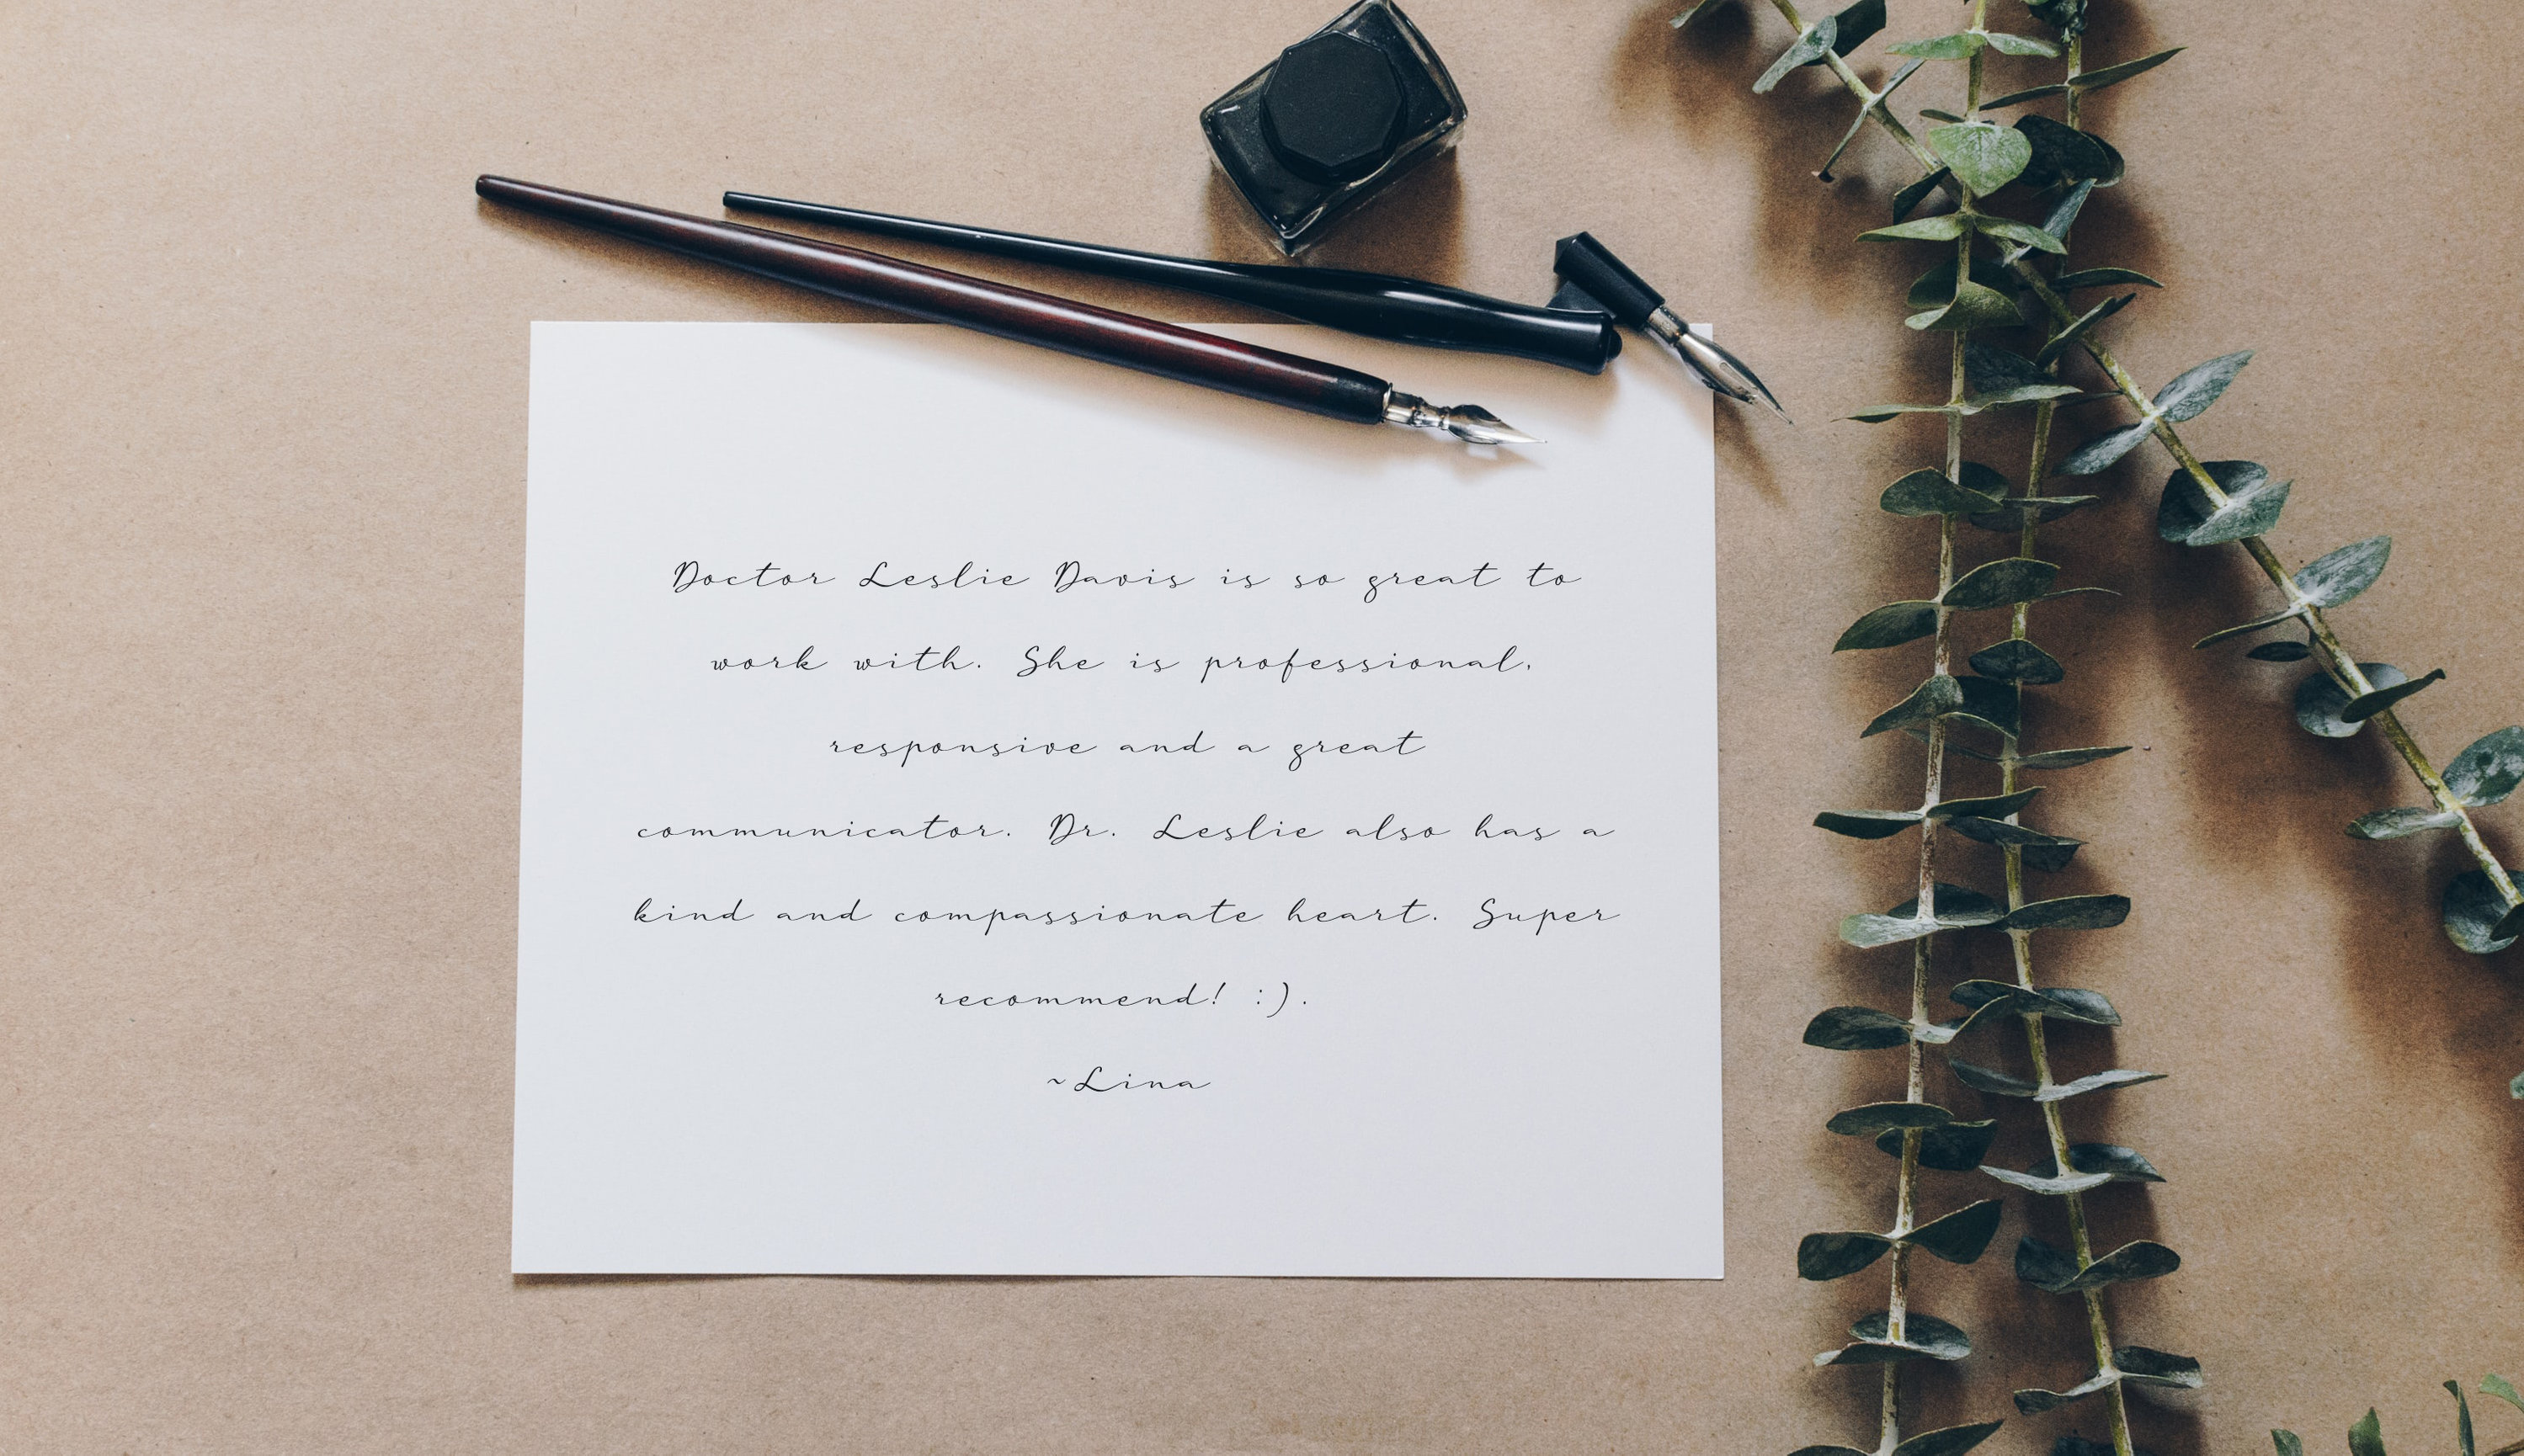 Doctor Leslie Davis is so great to
work with. She is professional,
responsive and a great
communicator. Dr. Leslie also has a
kind and compassionate heart. Super
recommend! :).
~Lina